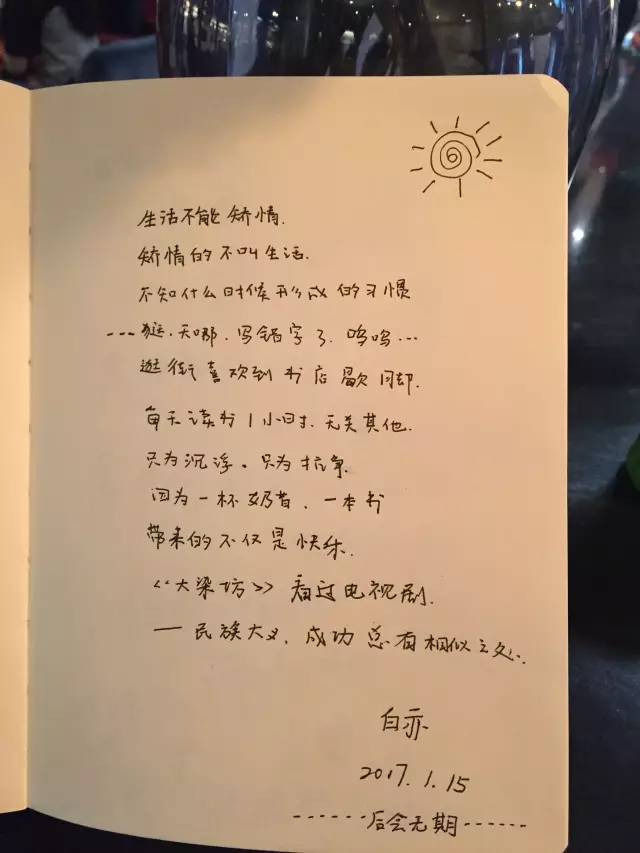 生活不能矫情.
矫情的不叫生活.
不知什么时候形成的习惯
天哪.写错字了.呜呜...
逛街喜欢到书店歇脚.
每天读书1小时.无关其他.
只为沉浮。只为抗争.
因为一杯奶昔,一本书
带来的不仅是快乐.
《大染坊》看过电视剧.
—民族大义,成功总有相似之处.
白亦
2017.1.15
------后会无期------